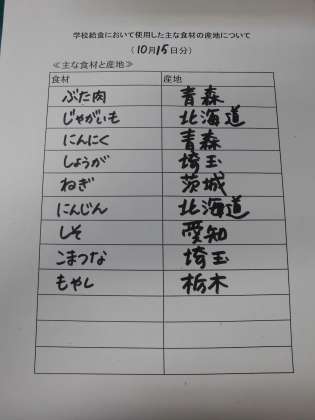 学校給食において使用した主な食材の産地について
(10月15日分)
≪主な食材と産地≫
食材 産地
ぶた肉 青森
じゃがいも 北海道
にんにく 青森
しょうが 埼玉
ねぎ 茨城
にんじん 北海道
しそ 愛知
こまつな 埼玉
もやし 栃木